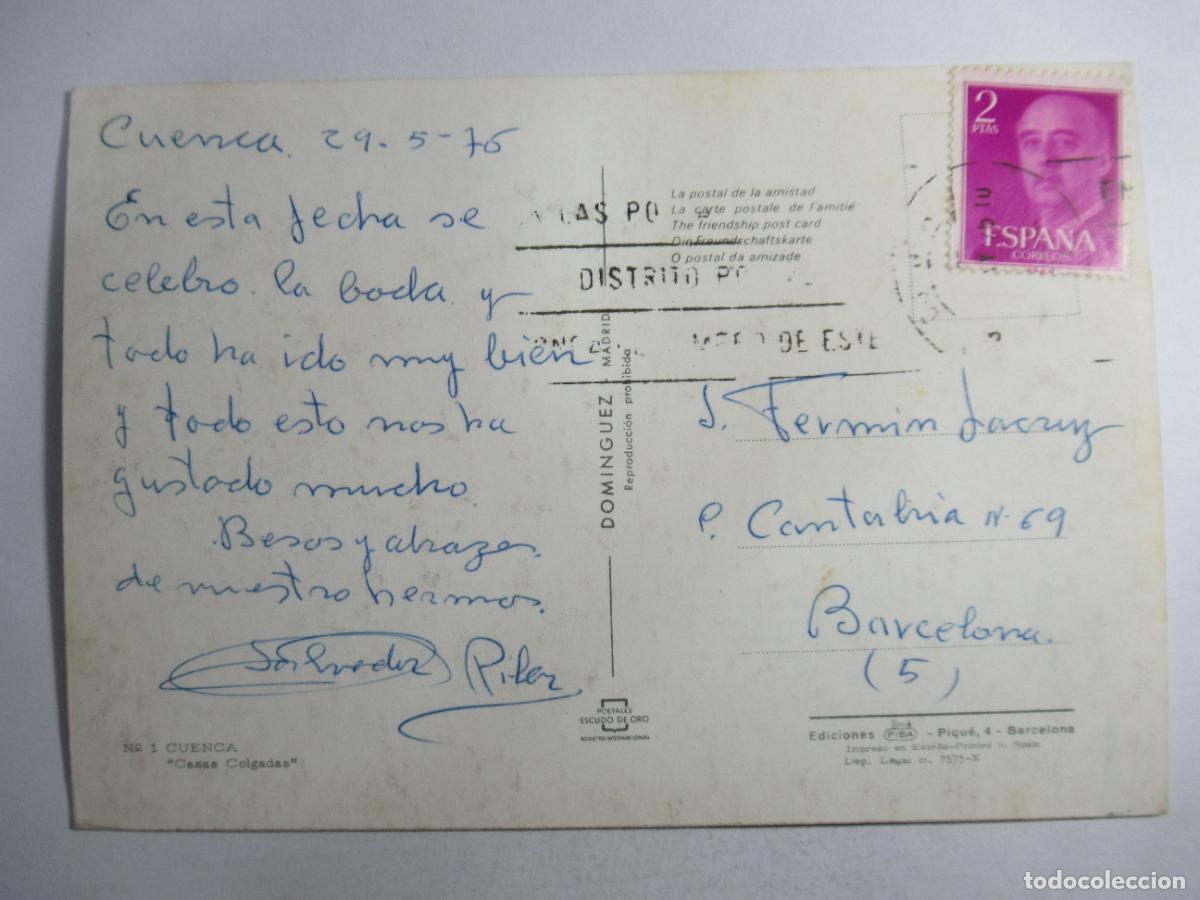 Cuenca. 29-5-76
En esta fecha se
celebro la boda y
todo ha ido muy bien
y todo esto nos ha
gustado mucho
Besos y abrazos
de nuestro hermos.
Salvador Pilar
Nº 1 CUENCA
"Casas Colgadas"
La postal de la amistad
La carte postale de l'amitié
The friendship post card
Die Freundschaftskarte
O postal da amizade
DISTRITO
DE ESTE
DOMINGUEZ MADRID
Reproducción prohibida
POSTALES
ESCUDO DE ORO
REGISTRO INTERNACIONAL
2
PTAS
ESPAÑA
CORREOS
S. Fermin Lacruz
P. Cantabria N. 69
Barcelona.
(5)
Ediciones FISA - Piqué, 4 - Barcelona
Impreso en España-Printed in Spain
Dep. Legal B. 7575-X
todocoleccion